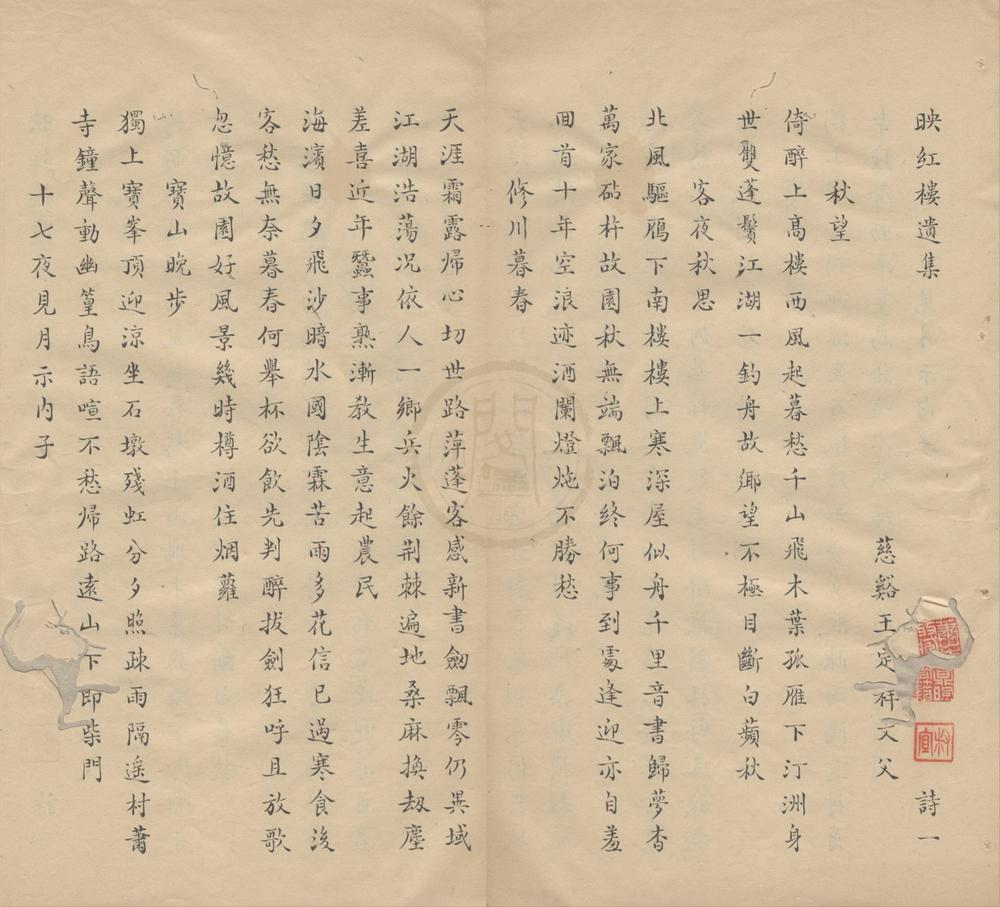 映紅樓遺集 詩一
慈谿王定祥文父
秋望
倚醉上高樓西風起暮愁千山飛木葉孤雁下汀洲身
世雙蓬鬢江湖一釣舟故鄉望不極目斷白蘋秋
客夜秋思
北風驅鴈下南樓樓上寒深屋似舟千里音書歸夢杳
萬家砧杵故園秋無端飄泊終何事到處逢迎亦自羞
囬首十年空浪迹酒闌燈灺不勝愁
修川暮春
天涯霜露歸心切世路萍蓬客感新書劒飄零仍異域
江湖浩蕩况依人一鄉兵火餘荆棘遍地桑麻換刼塵
差喜近年蠶事熟漸教生意起農民
海濱日夕飛沙暗水國陰霖苦雨多花信已過寒食後
客愁無奈暮春何舉杯欲飲先判醉拔劍狂呼且放歌
忽憶故園好風景幾時樽酒住烟蘿
寶山晩步
獨上寶峯頂迎涼坐石墩殘虹分夕照疎雨隔遥村蕭
寺鐘聲動幽篁鳥語喧不愁歸路遠山下即柴門
十七夜見月示内子